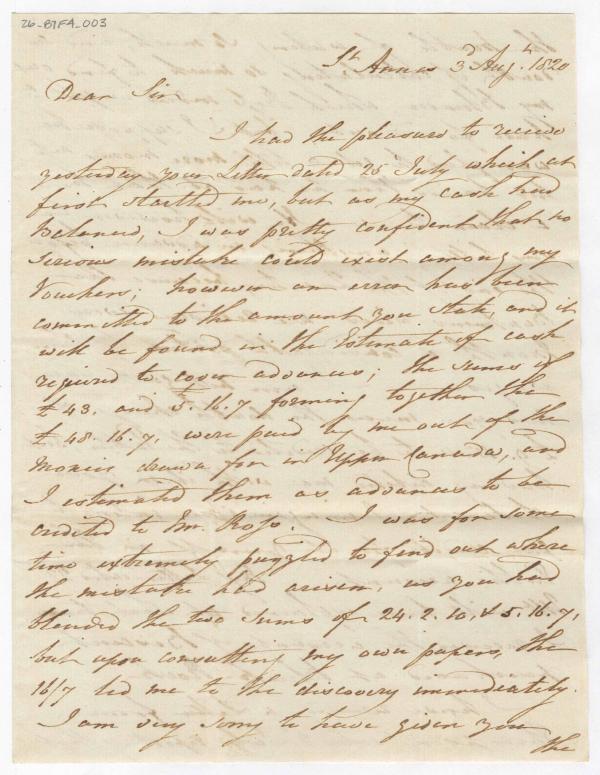 26-B7FA-003
St Annes 3d Augt. 1820
Dear Sir
I had the pleasure to receive
yesterday your Letter dated 25 July which at
first startled me, but as my cash had
Balanced, I was pretty confident that no
serious mistake could exist among my
Vouchers; however an error has been
committed to the amount you state, and it
will be found in the Estimate of cash
required to cover advances; the sums of
£43. and 5.16.7 forming together the
£48.16.7, were paid by me out of the
Monies drawn for in Upper Canada, and
I estimated them as advances to be
credited to Mr. Ross. I was for some
time extremely puzzled to find out where
the mistake had arisen, as you had
blended the two sums of 24.2.10, & 5.16.7,
but upon consulting my own papers, the
16/7 led me to the discovery immediately.
I am very sorry to have given you
the